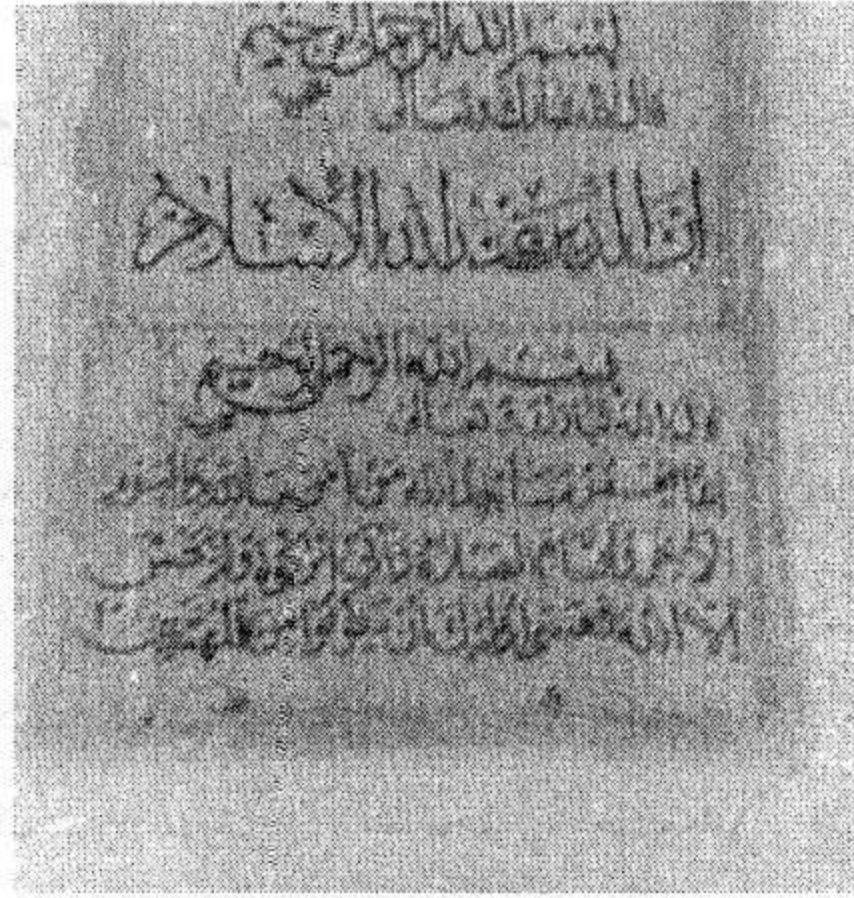 بسم الله الرحمن الرحيم
قال الله تبارك وتعالى
ان الدين عند الله الاسلام
بسم الله الرحمن الرحيم
قال الله تبارك وتعالى
انما يعمر مساجد الله من آمن بالله واليوم
الآخر واقام الصلاة وآتى الزكوة ولم يخش
الا الله فعسى اولئك ان يكونوا من المهتدين